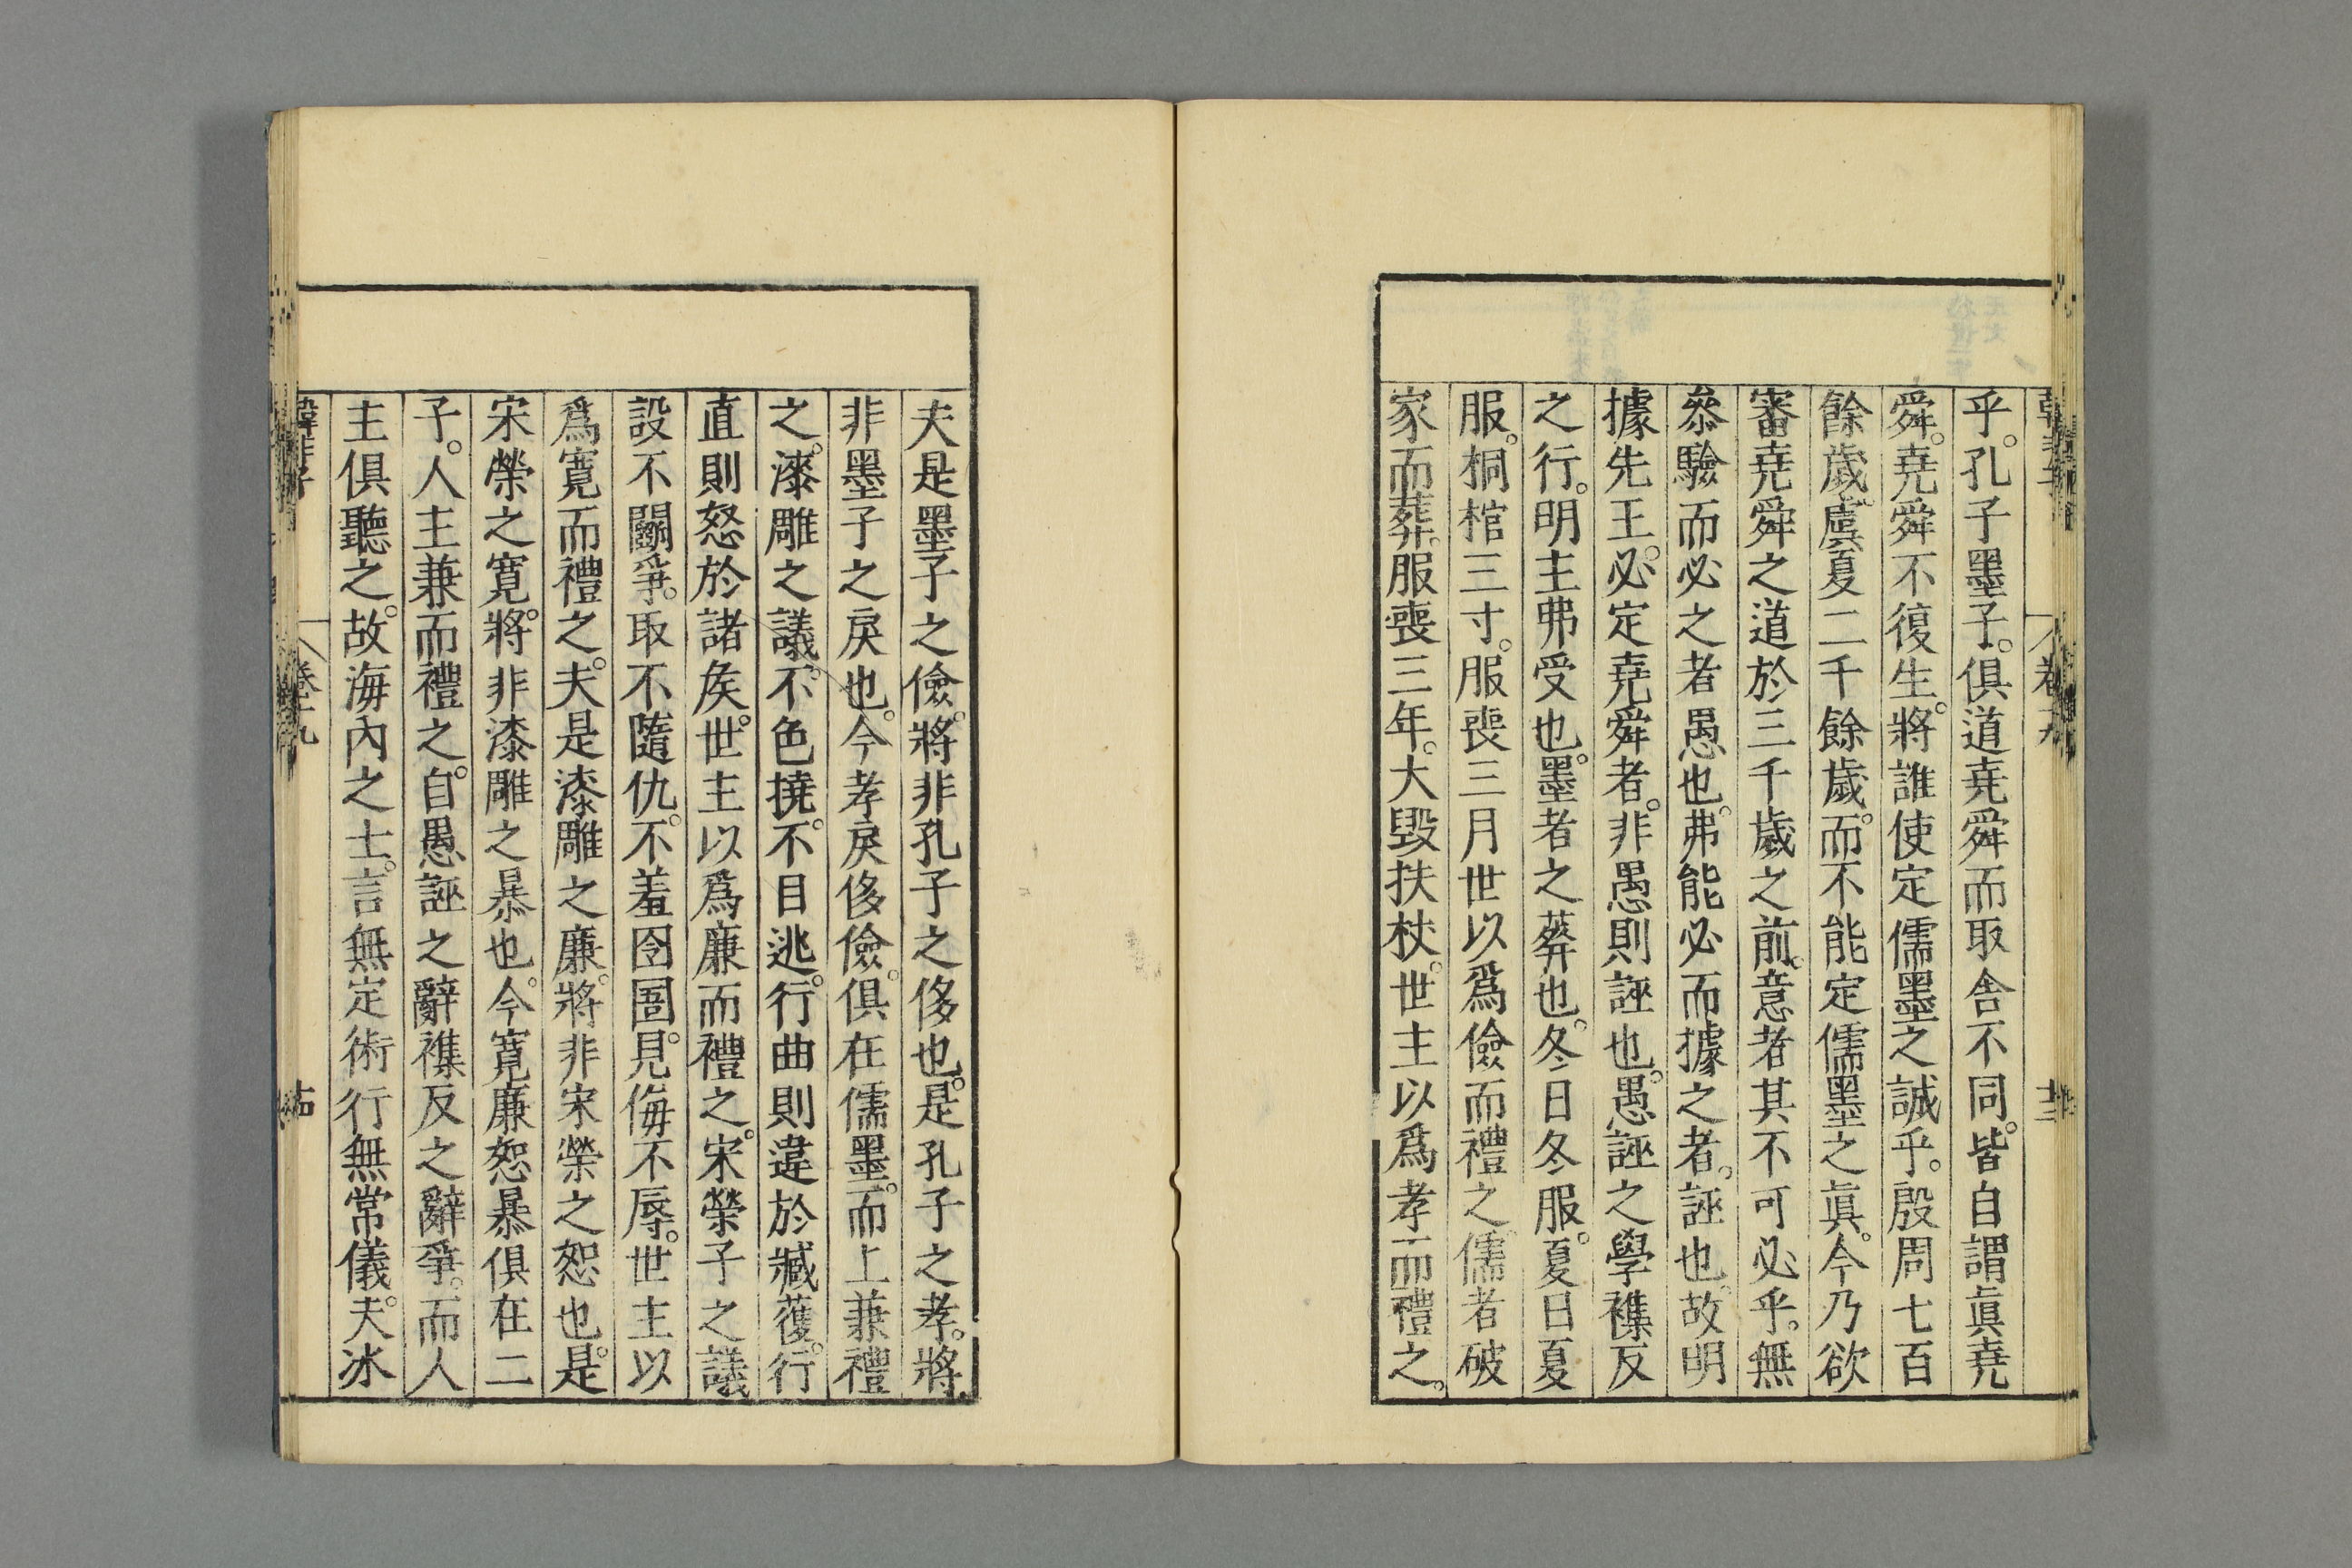 乎。孔子墨子。俱道堯舜而取舎不同。皆自謂眞堯
舜。堯舜不復生。將誰使定儒墨之誠乎。殷周七百
餘歲。虞夏二千餘歲。而不能定儒墨之眞。今乃欲
審堯舜之道於三千歲之前。意者其不可必乎。無
叅驗而必之者愚也。弗能必而據之者。誣也。故明
據先王。必定堯舜者。非愚則誣也。愚誣之學襍反
之行。明主弗受也。墨者之葬也。冬日冬服。夏日夏
服。桐棺三寸。服喪三月世以爲儉而禮之。儒者破
家而葬。服喪三年。大毀扶杖。世主以爲孝而禮之。
夫是墨子之儉。將非孔子之侈也。是孔子之孝。將
非墨子之戾也。今孝戾侈儉。俱在儒墨。而上兼禮
之。漆雕之議。不色撓。不目逃。行曲則違於臧獲。行
直則怒於諸矦。世主以爲廉而禮之。宋榮子之議
設不鬭爭。取不隨仇。不羞囹圄。見侮不辱。世主以
爲寬而禮之。夫是漆雕之廉。將非宋榮之恕也。是
宋榮之寬。將非漆雕之暴也。今寬廉恕暴俱在二
子。人主兼而禮之。自愚誣之辭襍反之辭爭。而人
主俱聽之。故海內之士。言無定術行無常儀。夫冰
韓非子 卷十九